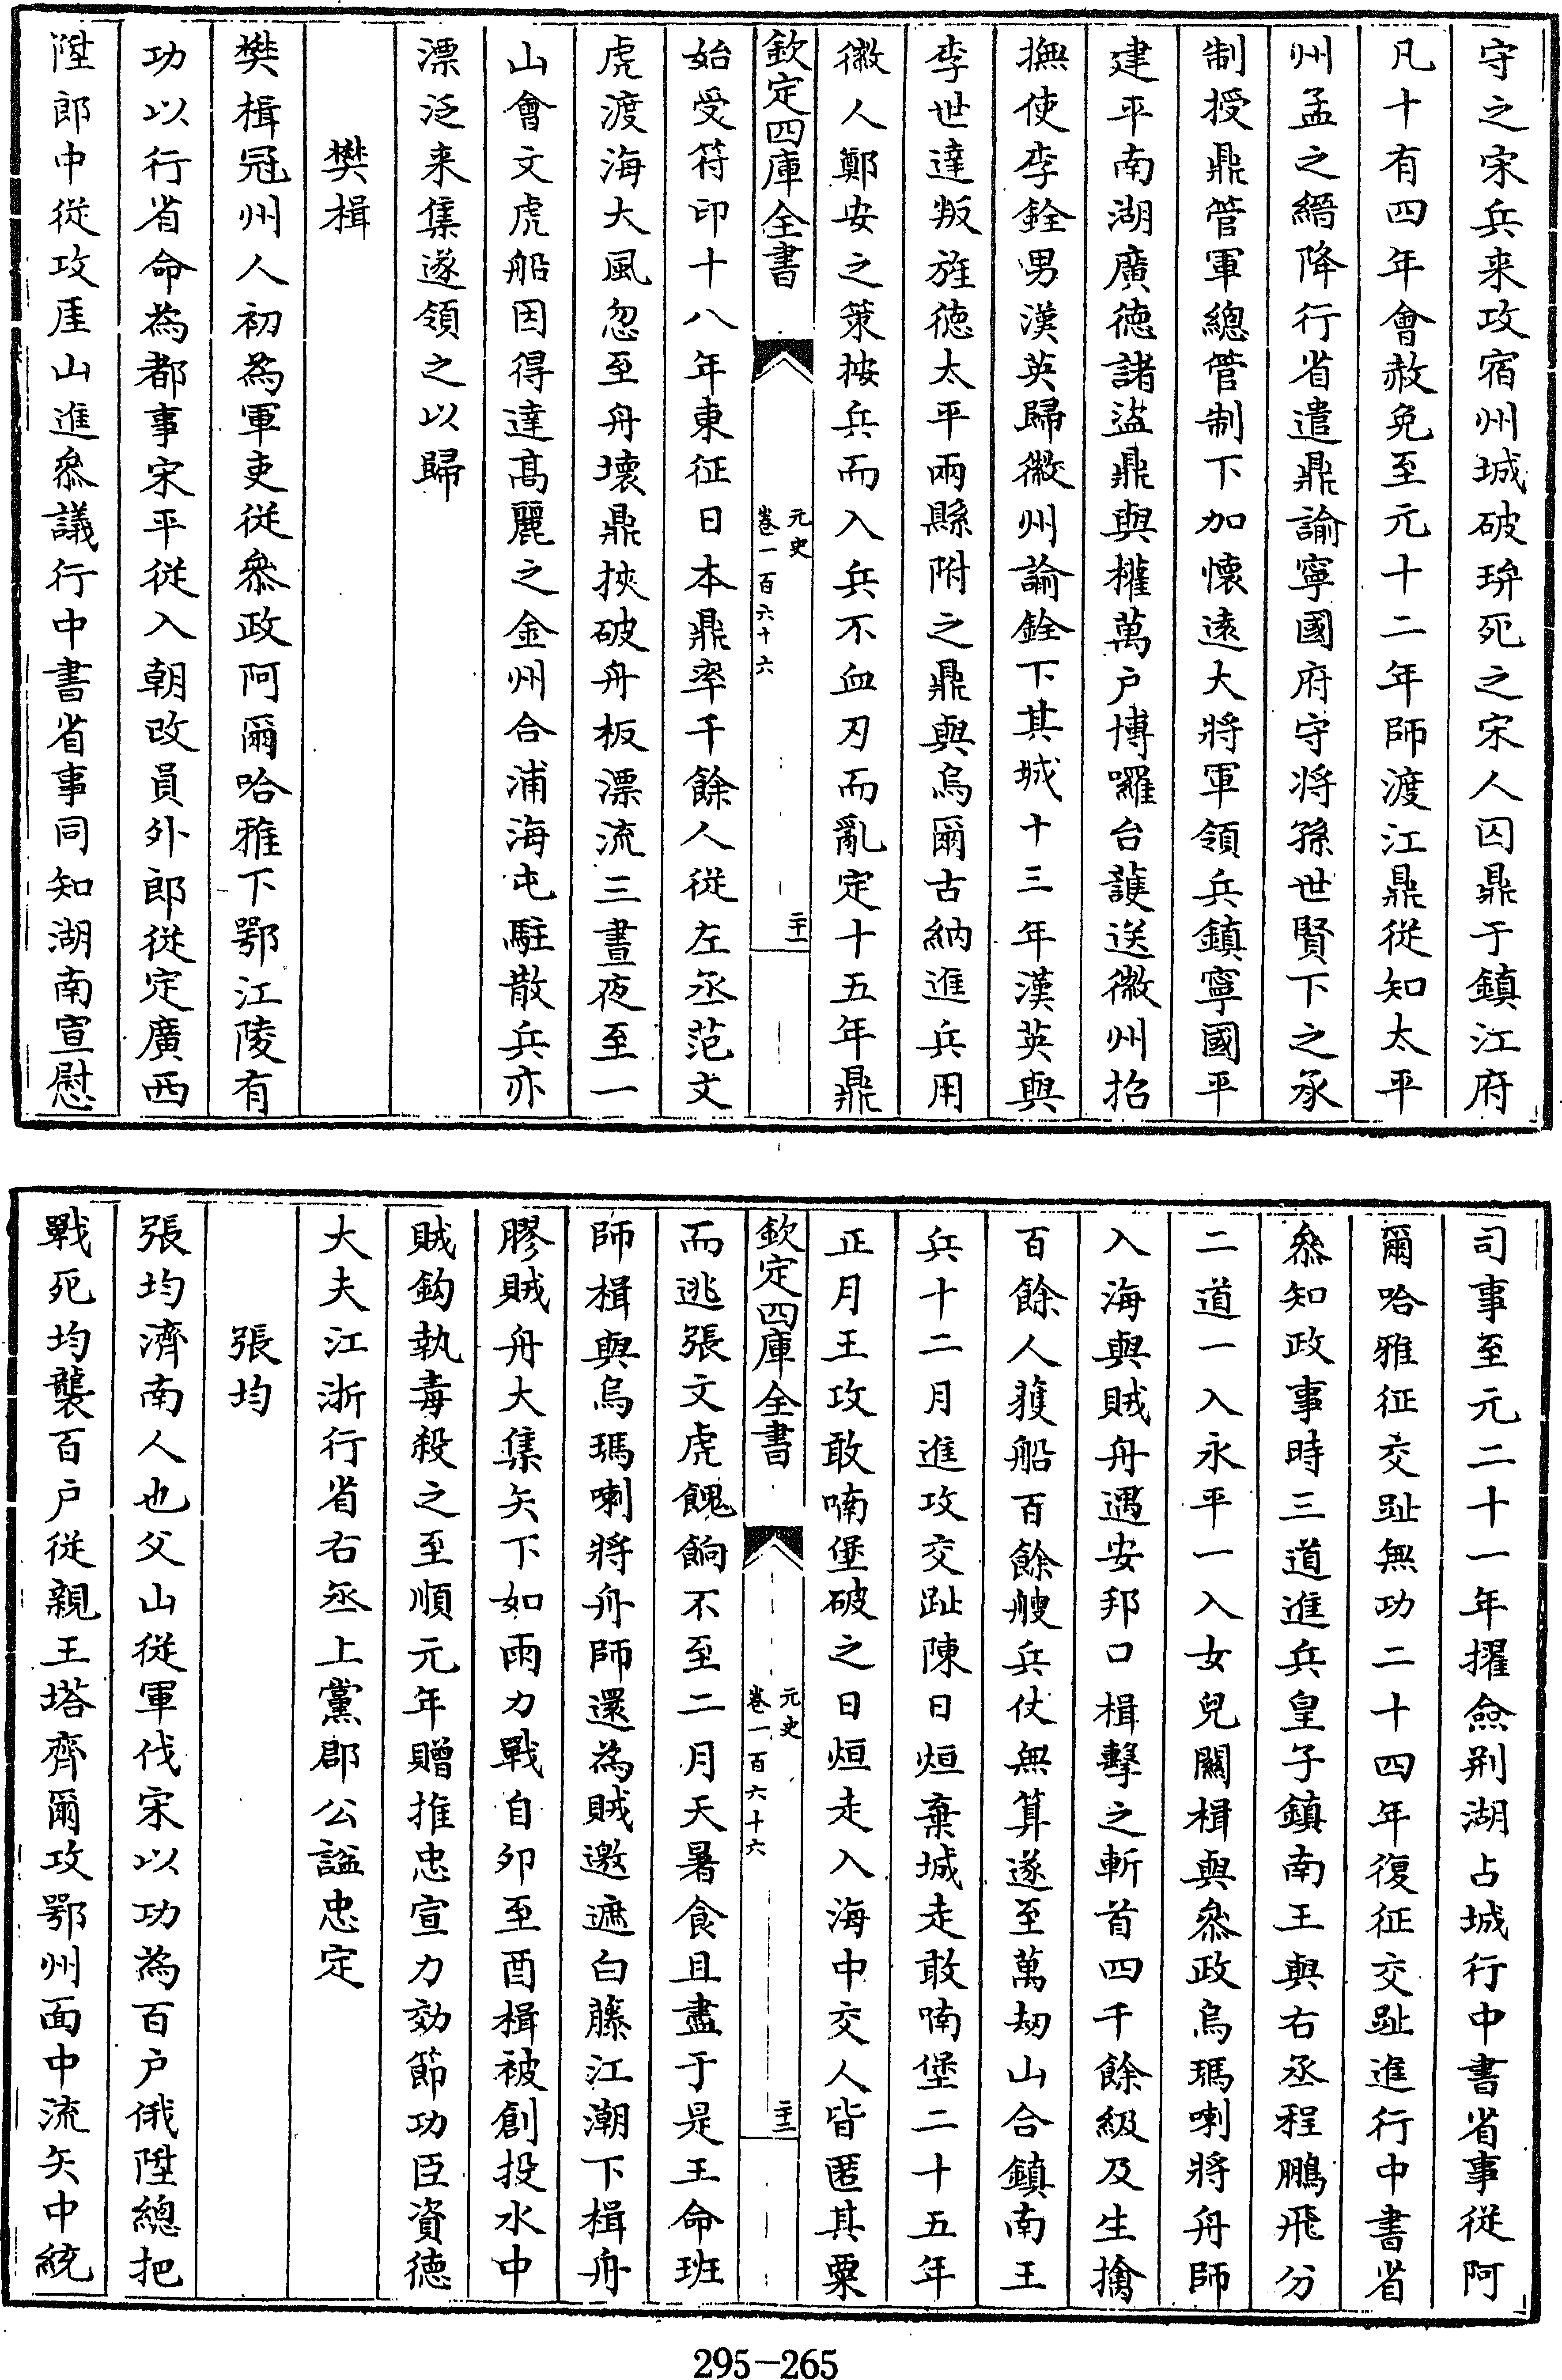 守之宋兵来攻宿州城破琾死之宋人囚鼎于鎮江府
凡十有四年會赦免至元十二年師渡江鼎從知太平
州孟之縉降行省遣鼎諭寧國府守将孫世賢下之承
制授鼎管軍總管制下加懷逺大將軍領兵鎮寧國平
建平南湖廣徳諸盜鼎與權萬户博囉台護送徽州招
撫使李銓男漢英歸徽州諭銓下其城十三年漢英與
李世達叛旌徳太平兩縣附之鼎與烏爾古納進兵用
徽人鄭安之策按兵而入兵不血刃而亂定十五年鼎
欽定四庫全書
元史
卷一百六十六
二十一
始受符印十八年東征日本鼎率千餘人從左丞范文
虎渡海大風忽至舟壞鼎挾破舟板漂流三晝夜至一
山會文虎船因得達髙麗之金州合浦海屯駐散兵亦
漂泛来集遂領之以歸
樊楫
樊楫冠州人初為軍吏從叅政阿爾哈雅下鄂江陵有
功以行省命為都事宋平從入朝改員外郎從定廣西
陞郎中從攻厓山進叅議行中書省事同知湖南宣慰
司事至元二十一年擢僉荆湖占城行中書省事從阿
爾哈雅征交趾無功二十四年復征交趾進行中書省
叅知政事時三道進兵皇子鎮南王與右丞程鵬飛分
二道一入永平一入女兒闗楫與叅政烏瑪喇將舟師
入海與賊舟遇安邦口楫擊之斬首四千餘級及生擒
百餘人獲船百餘艘兵仗無算遂至萬劫山合鎮南王
兵十二月進攻交趾陳日烜棄城走敢喃堡二十五年
正月王攻敢喃堡破之日烜走入海中交人皆匿其粟
欽定四庫全書
元史
卷一百六十六
二十二
而逃張文虎餽餉不至二月天暑食且盡于是王命班
師楫與烏瑪喇將舟師還為賊邀遮白藤江潮下楫舟
膠賊舟大集矢下如雨力戰自卯至酉楫被創投水中
賊鈎執毒殺之至順元年贈推忠宣力効節功臣資徳
大夫江浙行省右丞上黨郡公諡忠定
張均
張均濟南人也父山從軍伐宋以功為百户俄陞總把
戰死均襲百户從親王塔齊爾攻鄂州面中流矢中統
295-265